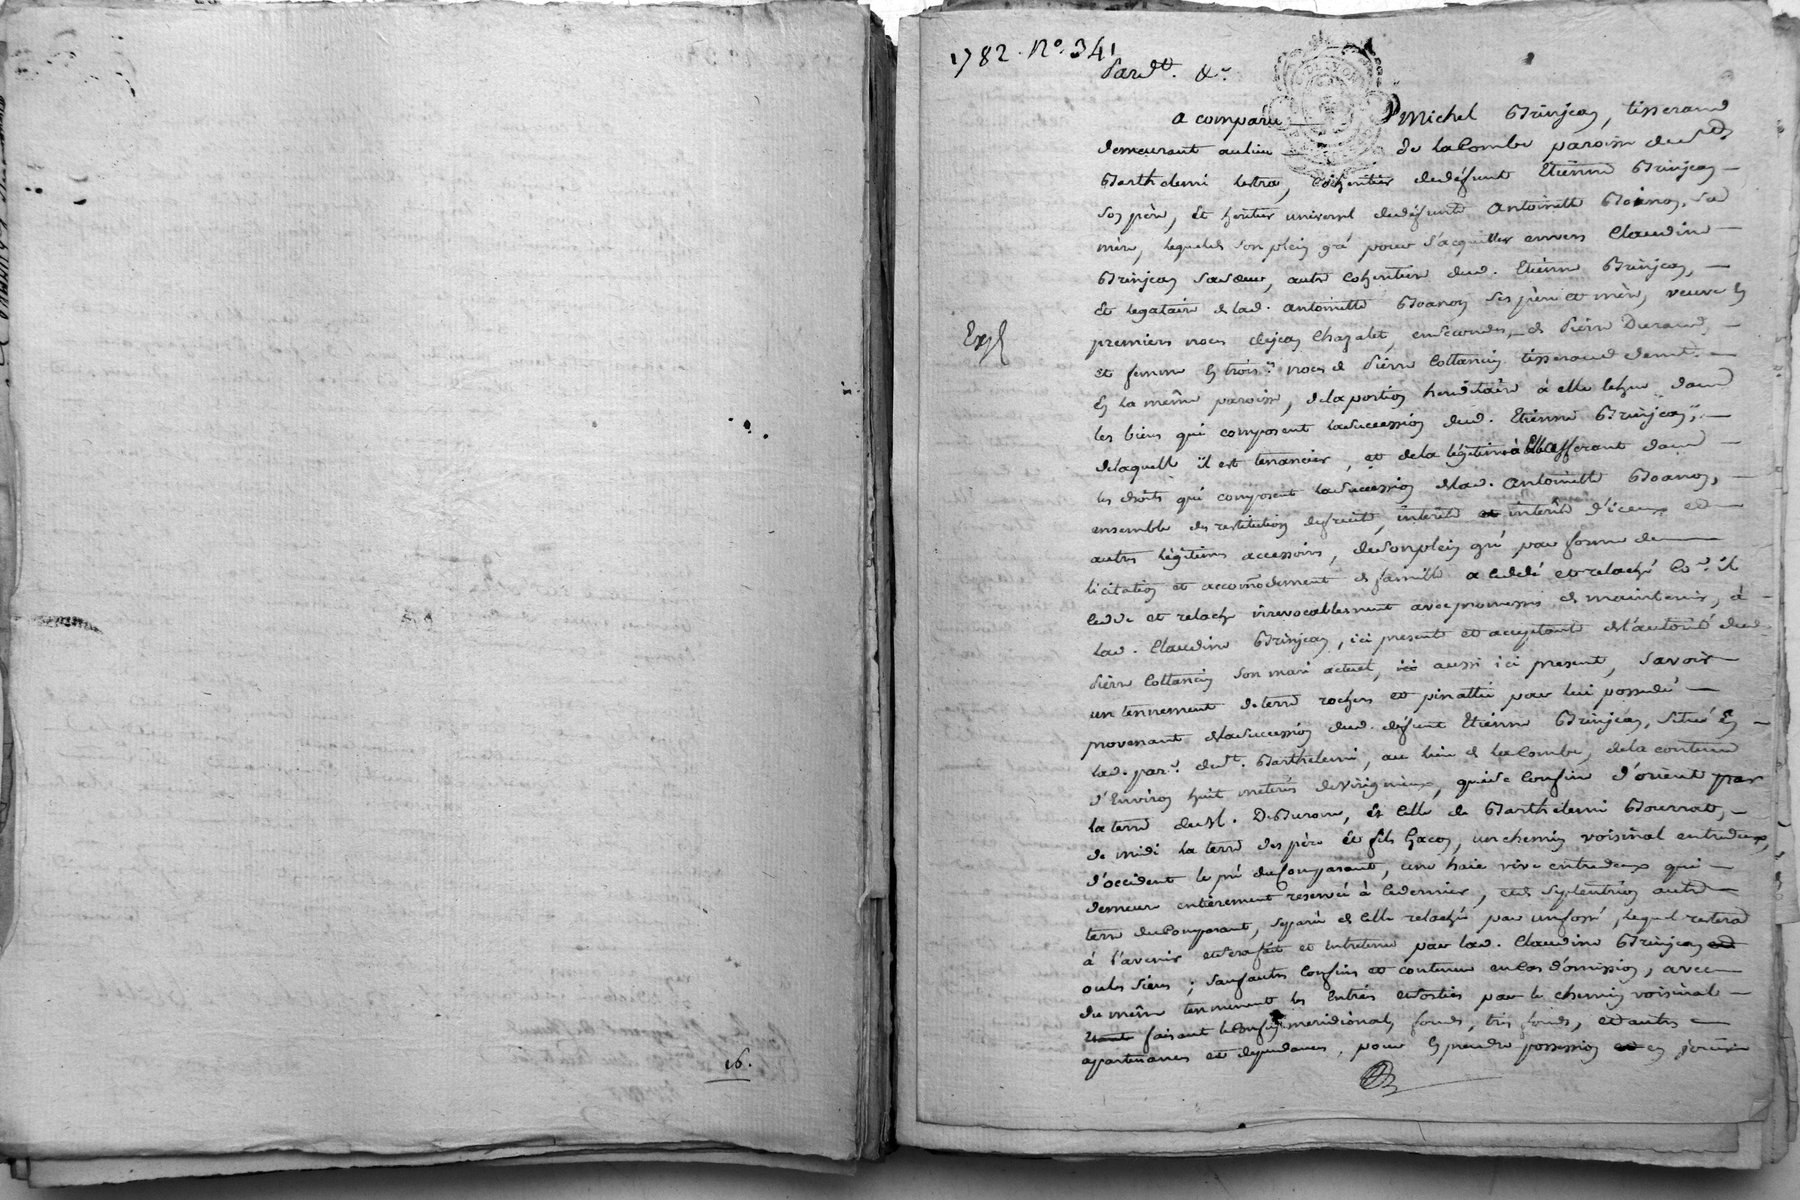 16.
1782. N.º 341
Pardt. &c.
a comparu Michel Grinjean, tisserand
demeurant au lieu de la Combe paroisse de St
Barthelemi lestra, cohéritier de défunt Etienne Grinjean
son père, et héritier universel de défunte Antoinette sa
mère, lequel de son plein gré pour s'acquitter envers Claudine
Grinjean sa sœur, autre cohéritière dud. Etienne Grinjean,
et légataire de lad. Antoinette ses père et mère, veuve en
premiers noces de jean Chazalet, en secondes de Pierre Durand,
Expé
et femme en trois.es noces de Pierre Collancin tisserand demt.
en la même paroisse, de la portion héréditaire à elle léguée dans
les biens qui composent la succession dud. Etienne Grinjean,
de laquelle il est tenancier, et de la légitime à elle afferant dans
les droits qui composent la succession de lad. Antoinette
ensemble des restitution de fruits, intérêts et intérêts d'iceux et
autres légitimes accessoires, de son plein gré par forme de
licitation et accomodement de famille a cédé et relaché co.e il
cede et relache irrevocablement avec promesse de maintenir, à
lad. Claudine Grinjean, ici présente et acceptante de l'autorité dud.
Pierre Collancin son mari actuel, ici aussi ici present, savoir
un tennement de terre rochers et pinattée par lui possedé
provenant de la succession dud. défunt Etienne Grinjean, situé en
lad. par.e de St. Barthelemi, au lieu de la Combe, de la contenue
d'environ huit méterés de Virignieux, qui se confine d'orient par
la terre du Sr. et celle de Barthelemi
de midi la terre des père et fils Gacon, un chemin voisinal entredeux,
d'occident le pré du comparant, une haie vive entredeux qui
demeure entièrement reservée à ce dernier, et de septentrion autre
terre du comparant, separée de celle relachée par un fossé, lequel restera
à l'avenir et sera fait et entretenu par lad. Claudine Grinjean et
ou les siens; sauf autres confins et contenue en cas d'omission, avec
du même tennement les entrées et sorties par le chemin voisinal
étant faisant le confin meridional, fonds, très fonds, et autres
appartenances et dependances, pour en prendre possession et en jouir